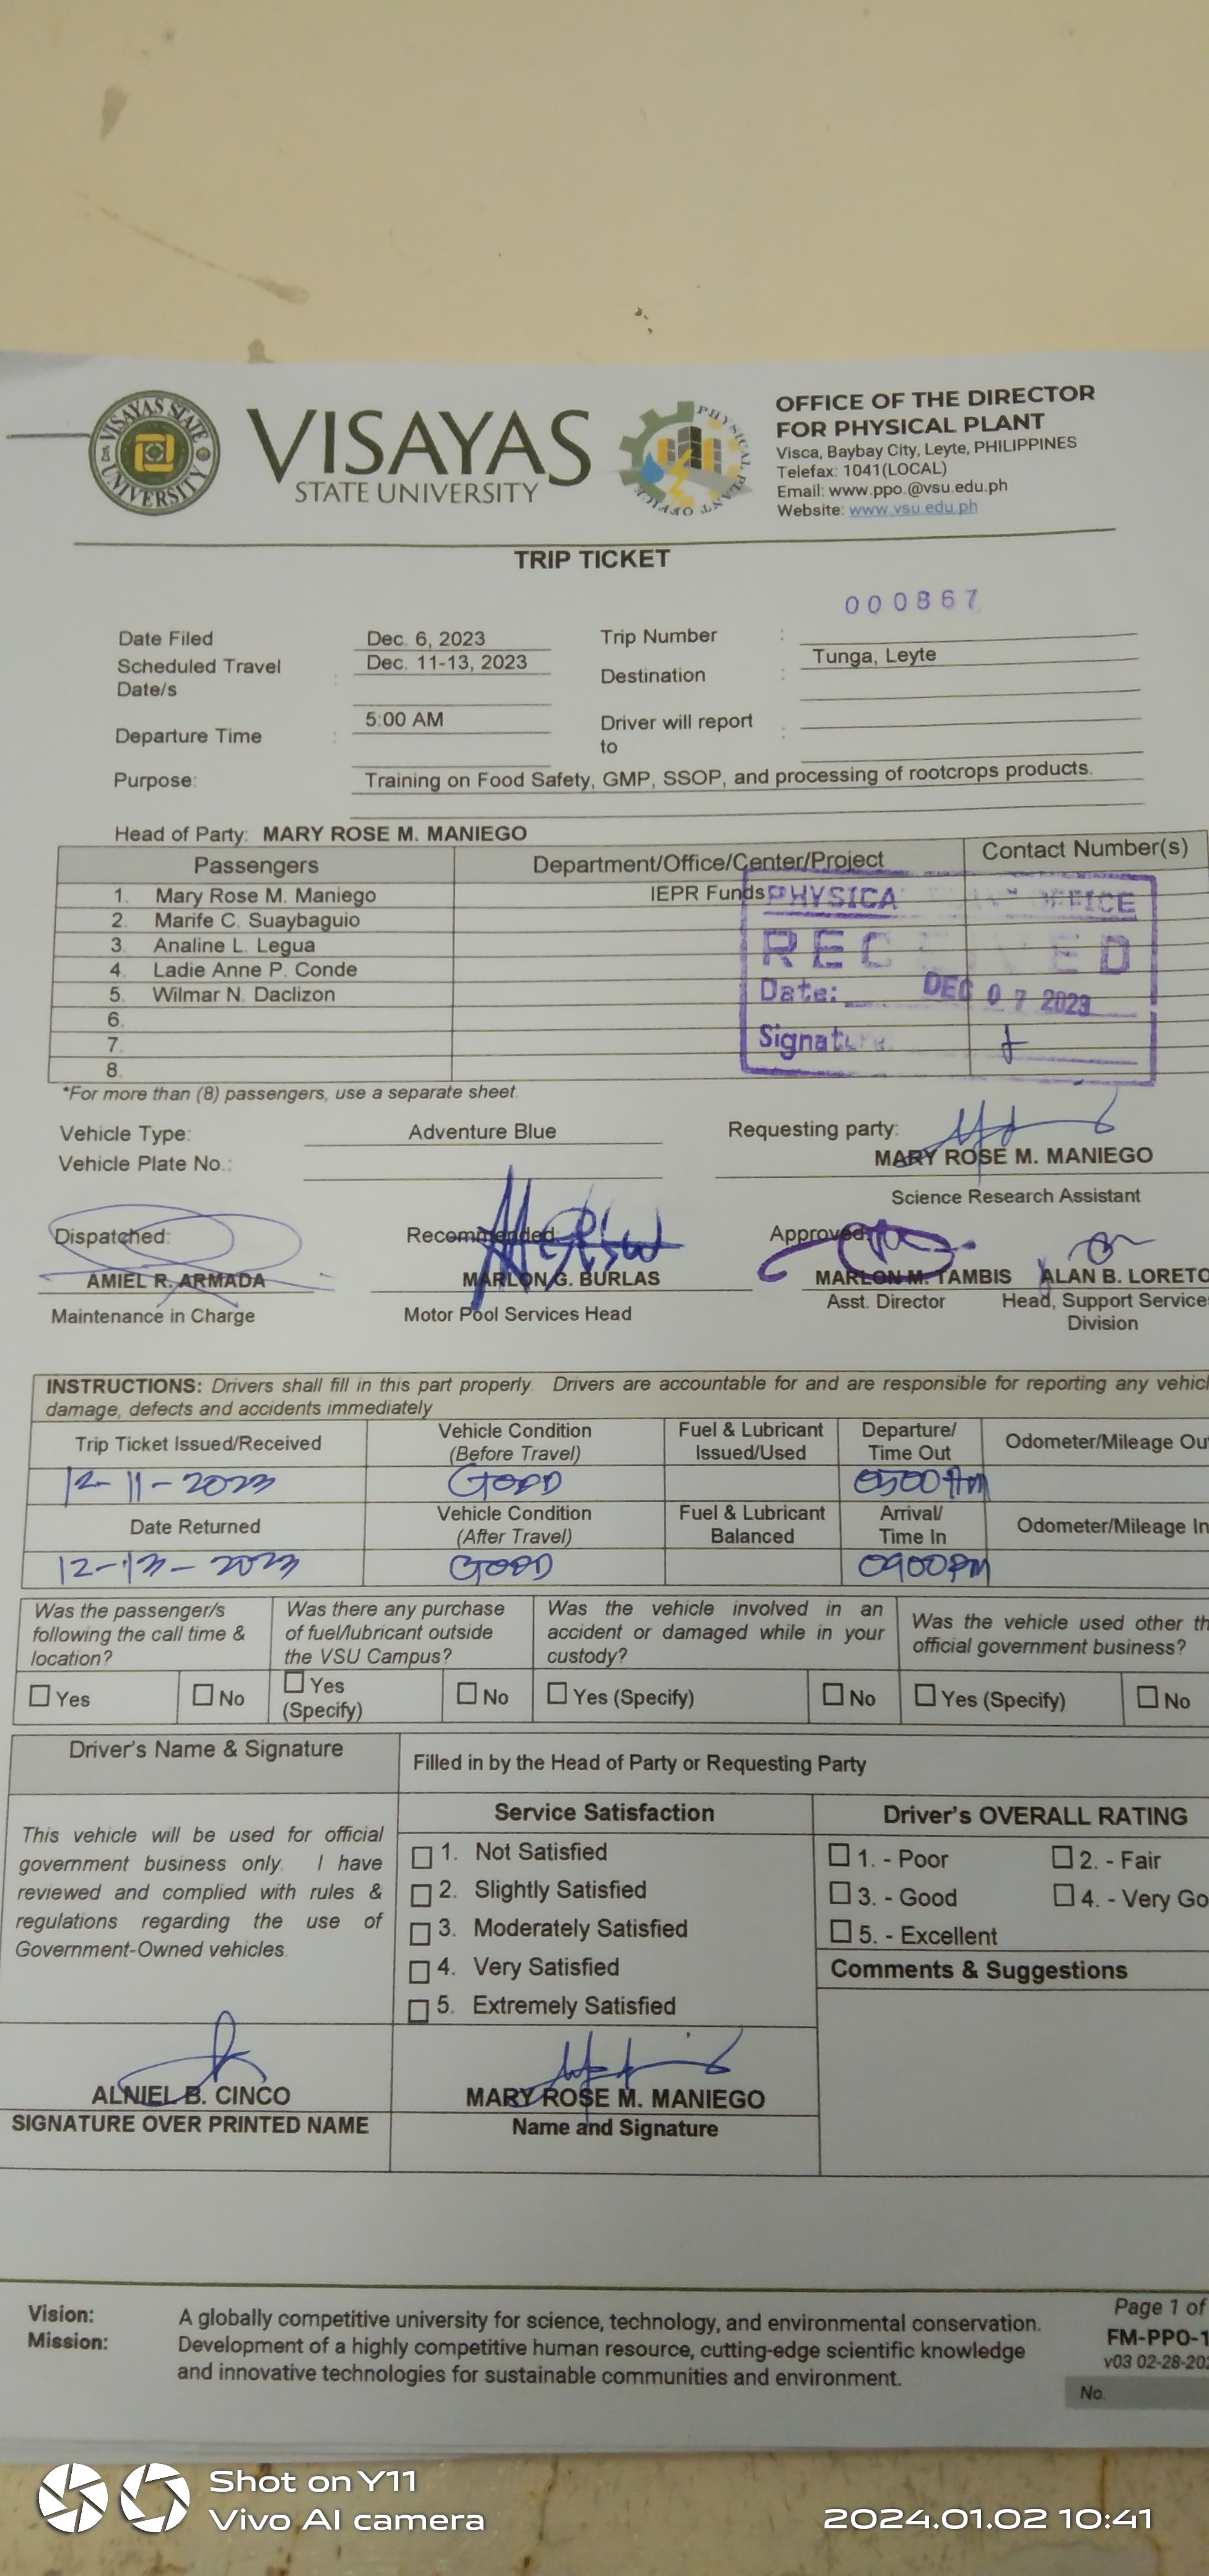 VISAYAS STATE UNIVERSITY
VISAYAS
STATE UNIVERSITY
PHYSICAL PLANT OFFICE
OFFICE OF THE DIRECTOR
FOR PHYSICAL PLANT
Visca, Baybay City, Leyte, PHILIPPINES
Telefax: 1041(LOCAL)
Email: www.ppo.@vsu.edu.ph
Website: www.vsu.edu.ph
TRIP TICKET
000867
Date Filed Dec. 6, 2023 Trip Number :
Scheduled Travel Date/s : Dec. 11-13, 2023 Destination : Tunga, Leyte
Departure Time : 5:00 AM Driver will report to :
Purpose: Training on Food Safety, GMP, SSOP, and processing of rootcrops products.
Head of Party: MARY ROSE M. MANIEGO
Passengers Department/Office/Center/Project Contact Number(s)
1. Mary Rose M. Maniego IEPR Funds
2. Marife C. Suaybaguio
3. Analine L. Legua
4. Ladie Anne P. Conde
5. Wilmar N. Daclizon
6.
7.
8.
PHYSICA OFFICE
REC VED
Date: DEC 07 2023
Signat
*For more than (8) passengers, use a separate sheet.
Vehicle Type: Adventure Blue Requesting party:
Vehicle Plate No.: MARY ROSE M. MANIEGO
Science Research Assistant
Dispatched: Recommended: Approved:
AMIEL R. ARMADA MARLON G. BURLAS MARLON M. TAMBIS ALAN B. LORETO
Maintenance in Charge Motor Pool Services Head Asst. Director Head, Support Service
Division
INSTRUCTIONS: Drivers shall fill in this part properly. Drivers are accountable for and are responsible for reporting any vehicl
damage, defects and accidents immediately
Trip Ticket Issued/Received Vehicle Condition (Before Travel) Fuel & Lubricant Issued/Used Departure/ Time Out Odometer/Mileage Ou
12-11-2023 GOOD 0500AM
Date Returned Vehicle Condition (After Travel) Fuel & Lubricant Balanced Arrival/ Time In Odometer/Mileage In
12-13-2023 GOOD 0900PM
Was the passenger/s following the call time & location? Was there any purchase of fuel/lubricant outside the VSU Campus? Was the vehicle involved in an accident or damaged while in your custody? Was the vehicle used other th official government business?
Yes No Yes (Specify) No Yes (Specify) No Yes (Specify) No
Driver's Name & Signature Filled in by the Head of Party or Requesting Party
Service Satisfaction Driver's OVERALL RATING
This vehicle will be used for official
government business only. I have
reviewed and complied with rules &
regulations regarding the use of
Government-Owned vehicles.
1. Not Satisfied
2. Slightly Satisfied
3. Moderately Satisfied
4. Very Satisfied
5. Extremely Satisfied
1. - Poor 2. - Fair
3. - Good 4. - Very Go
5. - Excellent
Comments & Suggestions
ALNIEL B. CINCO MARY ROSE M. MANIEGO
SIGNATURE OVER PRINTED NAME Name and Signature
Vision: A globally competitive university for science, technology, and environmental conservation.
Mission: Development of a highly competitive human resource, cutting-edge scientific knowledge
and innovative technologies for sustainable communities and environment.
Page 1 of
FM-PPO-1
v03 02-28-20
No.
Shot on Y11
Vivo AI camera
2024.01.02 10:41